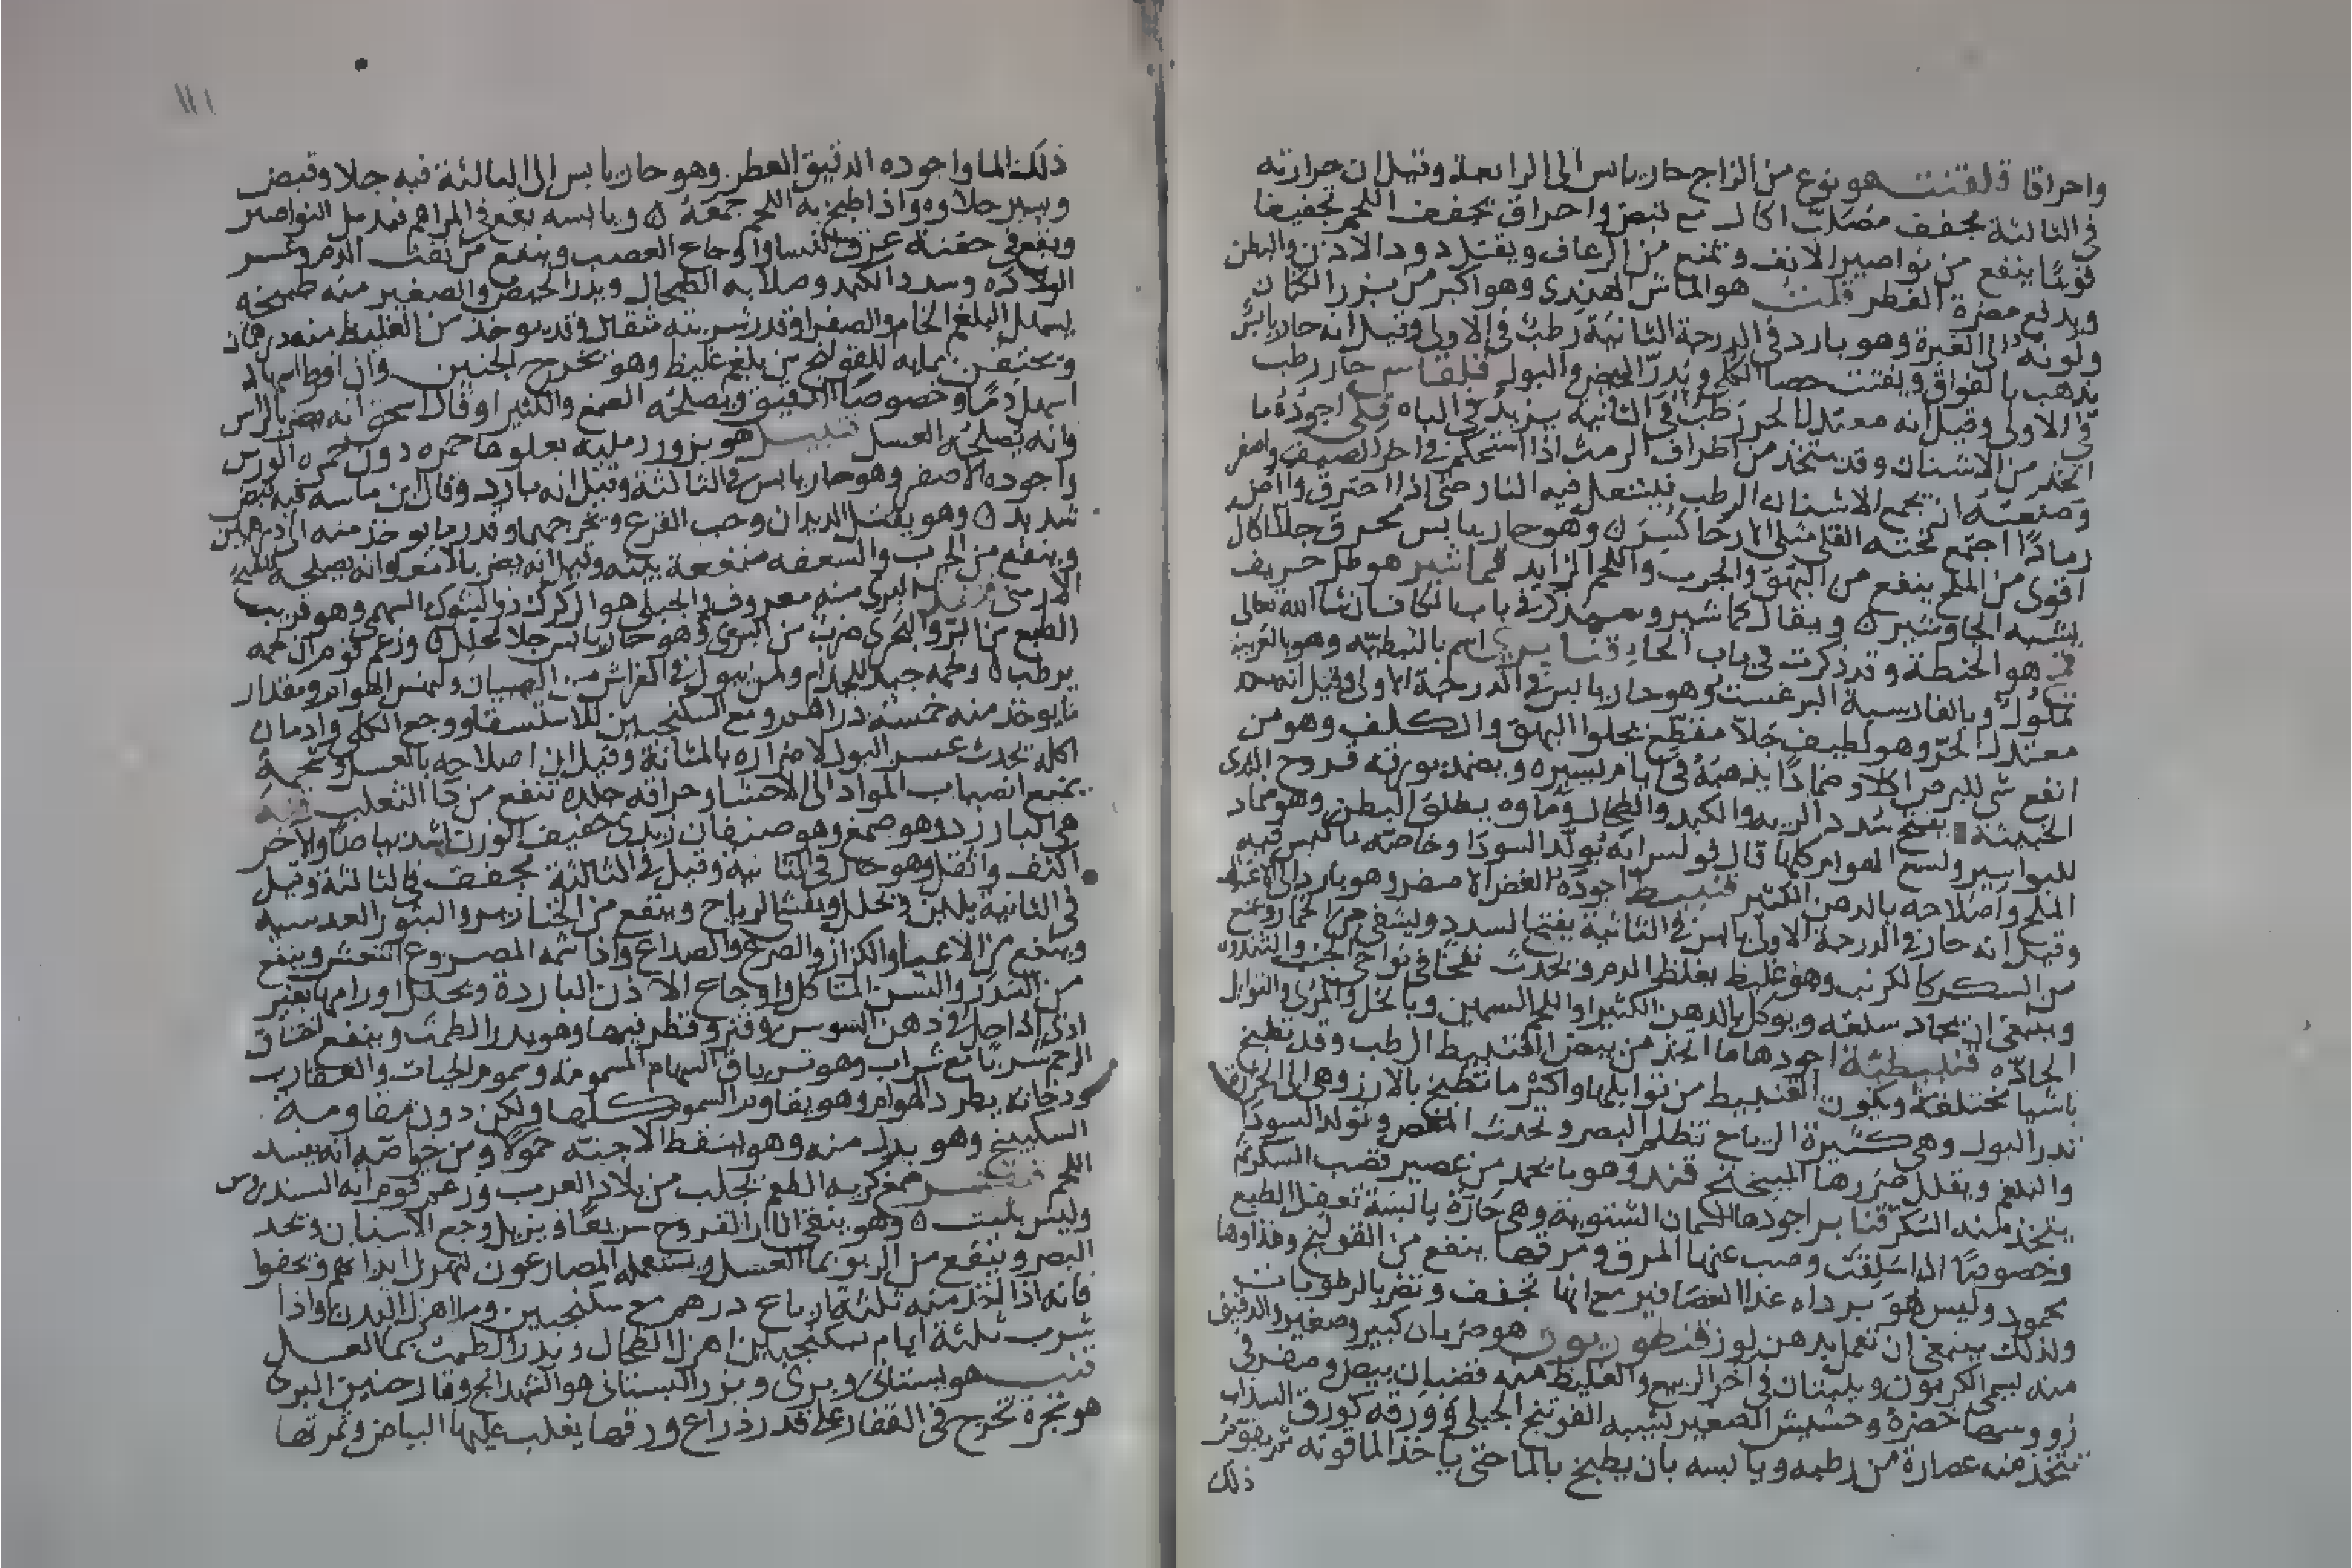 واحراقا قلقنت هو نوع من الزاج حار يابس الى الرابعة وقيل ان حرارته
في الثالثة مجفف مصلب اكال مع قبض واحراق يجفف اللحم تجفيفا
قويا ينفع من نواصير الانف ويمنع من الرعاف ويقتل دود الاذن والبطن
ويدفع مضرة الفطر قلت هو الماش الهندى وهو اكبر من بزر الكتان
ولونه الى الغبرة وهو بارد في الدرجة الثانية رطب في الاولى وقيل انه حار يابس
يذهب بالفواق ويفتت حصا الكلى ويدر الحيض والبول قلقاس حار رطب
في الاولى وقيل انه معتدل الحر رطب في الثانية يزيد في الباه قلى اجوده ما
اتخذ من الاشنان وقد يتخذ من اطراف الرمث اذا استحكم في اخر الصيف واصفر
وصنعته ان يجمع الاشنان الرطب فيشتعل فيه النار حتى اذا احترق
رمادا اجتمع تحته القلى مثل الارحا وهو حار يابس محرق جلا اكال
اقوى من الملح ينفع من البهق والجرب واللحم الزايد قماشير هو حريف
يشبه الجاوشير ويقال كماشير في باب الكاف ان شا الله تعالى
قمح هو الحنطة وقد ذكرت في باب الحا قنابرى اسم بالنبطية وهو بالعربية
تملول وبالفارسية البرغست وهو حار يابس في الدرجة الاولى وقيل انه
معتدل الحر وهو لطيف جلا مقطع يجلوا البهق والكلف وهو من
انفع شى للبرص اكلا وضمادا يذهبه في ايام يسيره ويضمد بورقه قروح الثدى
الخبيثة يفتح سدد الريه والكبد والطحال وماوه يطلق البطن وهو ضماد
للبواسير ولسع الهوام كلها قال بولس انه يولد السودا وخاصته ما كبس فيه
الملح واصلاحه بالدهن الكثير قنبيط اجوده الغض الاصفر وهو بارد
وقيل انه حار في الدرجة الاولى يابس في الثانية يفتح السدد ويشفى من الخمار ويمنع
من السكر كالكرنب وهو غليظ يغلظ الدم ويحدث نفخا في نواحى الجنب
وينبغى ان يجاد سلقه ويوكل بالدهن الكثير او اللحم السمين وبالخل والمرى والتوابل
الحاده قنبيطية اجودها ما اتخذ من بيض القنبيط الرطب وقد تطبخ
باشيا مختلفة ويكون القنبيط من توابلها واكثر ما تطبخ بالارز وهى الى الحرارة
تدر البول وهى كثيرة الرياح تظلم البصر وتحدث المغص وتولد السودا
والبلغم ويقلل ضررها قند وهو ما يجمد من عصير قصب السكر ثم
يتخذ منه السكر قنابر اجودها السمان الشتوية وهى حارة يابسة تعقل الطبع
وخصوصا اذا سلقت وصب عنها المرق ومرقها ينفع من القولنج وغذاوها
محمود وليس هو برداه غذا العصافير مع انها تجفف وتضر بالرطوبات
ولذلك ينبغى ان تعمل بدهن لوز قنطوريون هو ضربان كبير وصغير والدقيق
منه ينبتان في اخر الربيع والغليظ منه قضبان بيض وصفر في
زووسها خضرة وحشيش الصغير يشبه الفوتنج الجبلى وورقه كورق السذاب
تتخذ منه عصارة من رطبه ويابسه بان يطبخ بالما حتى ياخذ الما قوته ثم يقوم
ذلك
١١١
ذلك الما واجوده الدقيق العطر وهو حار يابس الى الثالثة فيه جلا وقبض
ويسير حلاوه واذا اطبخ به اللحم جمعه ويابسه يقع في المراهم فيدمل النواصير
وينفع في حقنة عرق النسا واوجاع العصب وينفع من نفث الدم وعسر
الولاده وسدد الكبد وصلابه الطحال ويدر الحيض والصغير منه طبيخه
يسهل البلغم الخام والصفرا وقدر شربته مثقال وقد يوخذ من الغليظ منه درهمان
ويحتقن بمايه للقولنج من بلغم غليظ وهو يخرج الجنين وان افرط اسهاله
اسهل دما وخصوصا الدقيق ويصلحه الصمغ والكثيرا وقال اسحق انه يضر بالراس
وانه يصلحه العسل قنبيل هو بزور رملية يعلوها حمره دون حمره الورس
واجوده الاصفر وهو حار يابس في الثالثة وقيل انه بارد وقال ابن ماسه فيه قبض
شديد وهو يقتل الديدان وحب القرع ويخرجها وقدر ما يوخذ منه الى درهمين
وينفع من الجرب والسعفه منفعة بينه وقيل انه يضر بالامعا وانه يصلحه
الارمنى قنفد البرى منه معروف والجبلى هو الركرك ذو الشوك السهمى وهو قريب
الطبع من البرى والبحرى ضرب من البرى وهو حار يابس جلا محلل وزعم قوم ان لحمه
يرطب ولحمه جيد للجذام ولمن يبول في الفراش من الصبيان ولنهش الهوام ومقدار
ما يوخذ منه خمسة دراهم ومع السكنجبين للاستسقا ووجع الكلى وادمان
اكله يحدث عسر البول لاضراره بالمثانة وقيل ان اصلاحه بالعسل وشحمه
يمنع انصباب المواد الى الاحشا وحراقه جلده تنفع من دا الثعلب قنه
هى البارزد وهو صمغ وهو صنفان زبدى خفيف الوزن اشد بياضا والاخر
اكثف واثقل وهو حار في الثانية وقيل في الثالثة مجفف في الثالثة وقيل
في الثانية يلين ويحلل ويفش الرياح وينفع من الخنازير والبثور العدسية
وينفع من الاعيا والكزاز والصرع والصداع واذا شمه المصروع انتعش وينفع
من السدر والسن المتاكل واوجاع الاذن الباردة ويحلل اورامها بغير
اذى اذا حل في دهن السوسن وفتر وقطر فيها وهو يدر الطمث وينفع اختناق
الرحم شربا مع شراب وهو ترياق السهام المسمومة وسموم الحيات والعقارب
ودخانه يطرد الهوام وهو يقاوم السموم كلها ولكن دون مقاومة
السكبينج وهو بدل منه وهو يسقط الاجنه حمولا ومن خواصه انه يفسد
اللحم صمغ كريه الطعم يجلب من بلاد العرب وزعم قوم انه السندروس
وليس بثبت وهو ينقى اثار القروح سريعا ويزيل وجع الاسنان ويحد
البصر وينفع من الربو بما العسل ويستعمله المصارعون لتهزل ابدانهم ويخفوا
فانه اذا اخذ منه ثلثة ارباع درهم مع سكنجبين وما اهزل البدن واذا
شرب ثلثة ايام بسكنجبين اهزل الطحال ويدر الطمث بما العسل
قنب هو بستانى وبرى وبزر البستانى هو الشهدانج وقال حنين البرى
هو شجرة تخرج في القفار على قدر ذراع ورقها يغلب عليها البياض وثمرتها